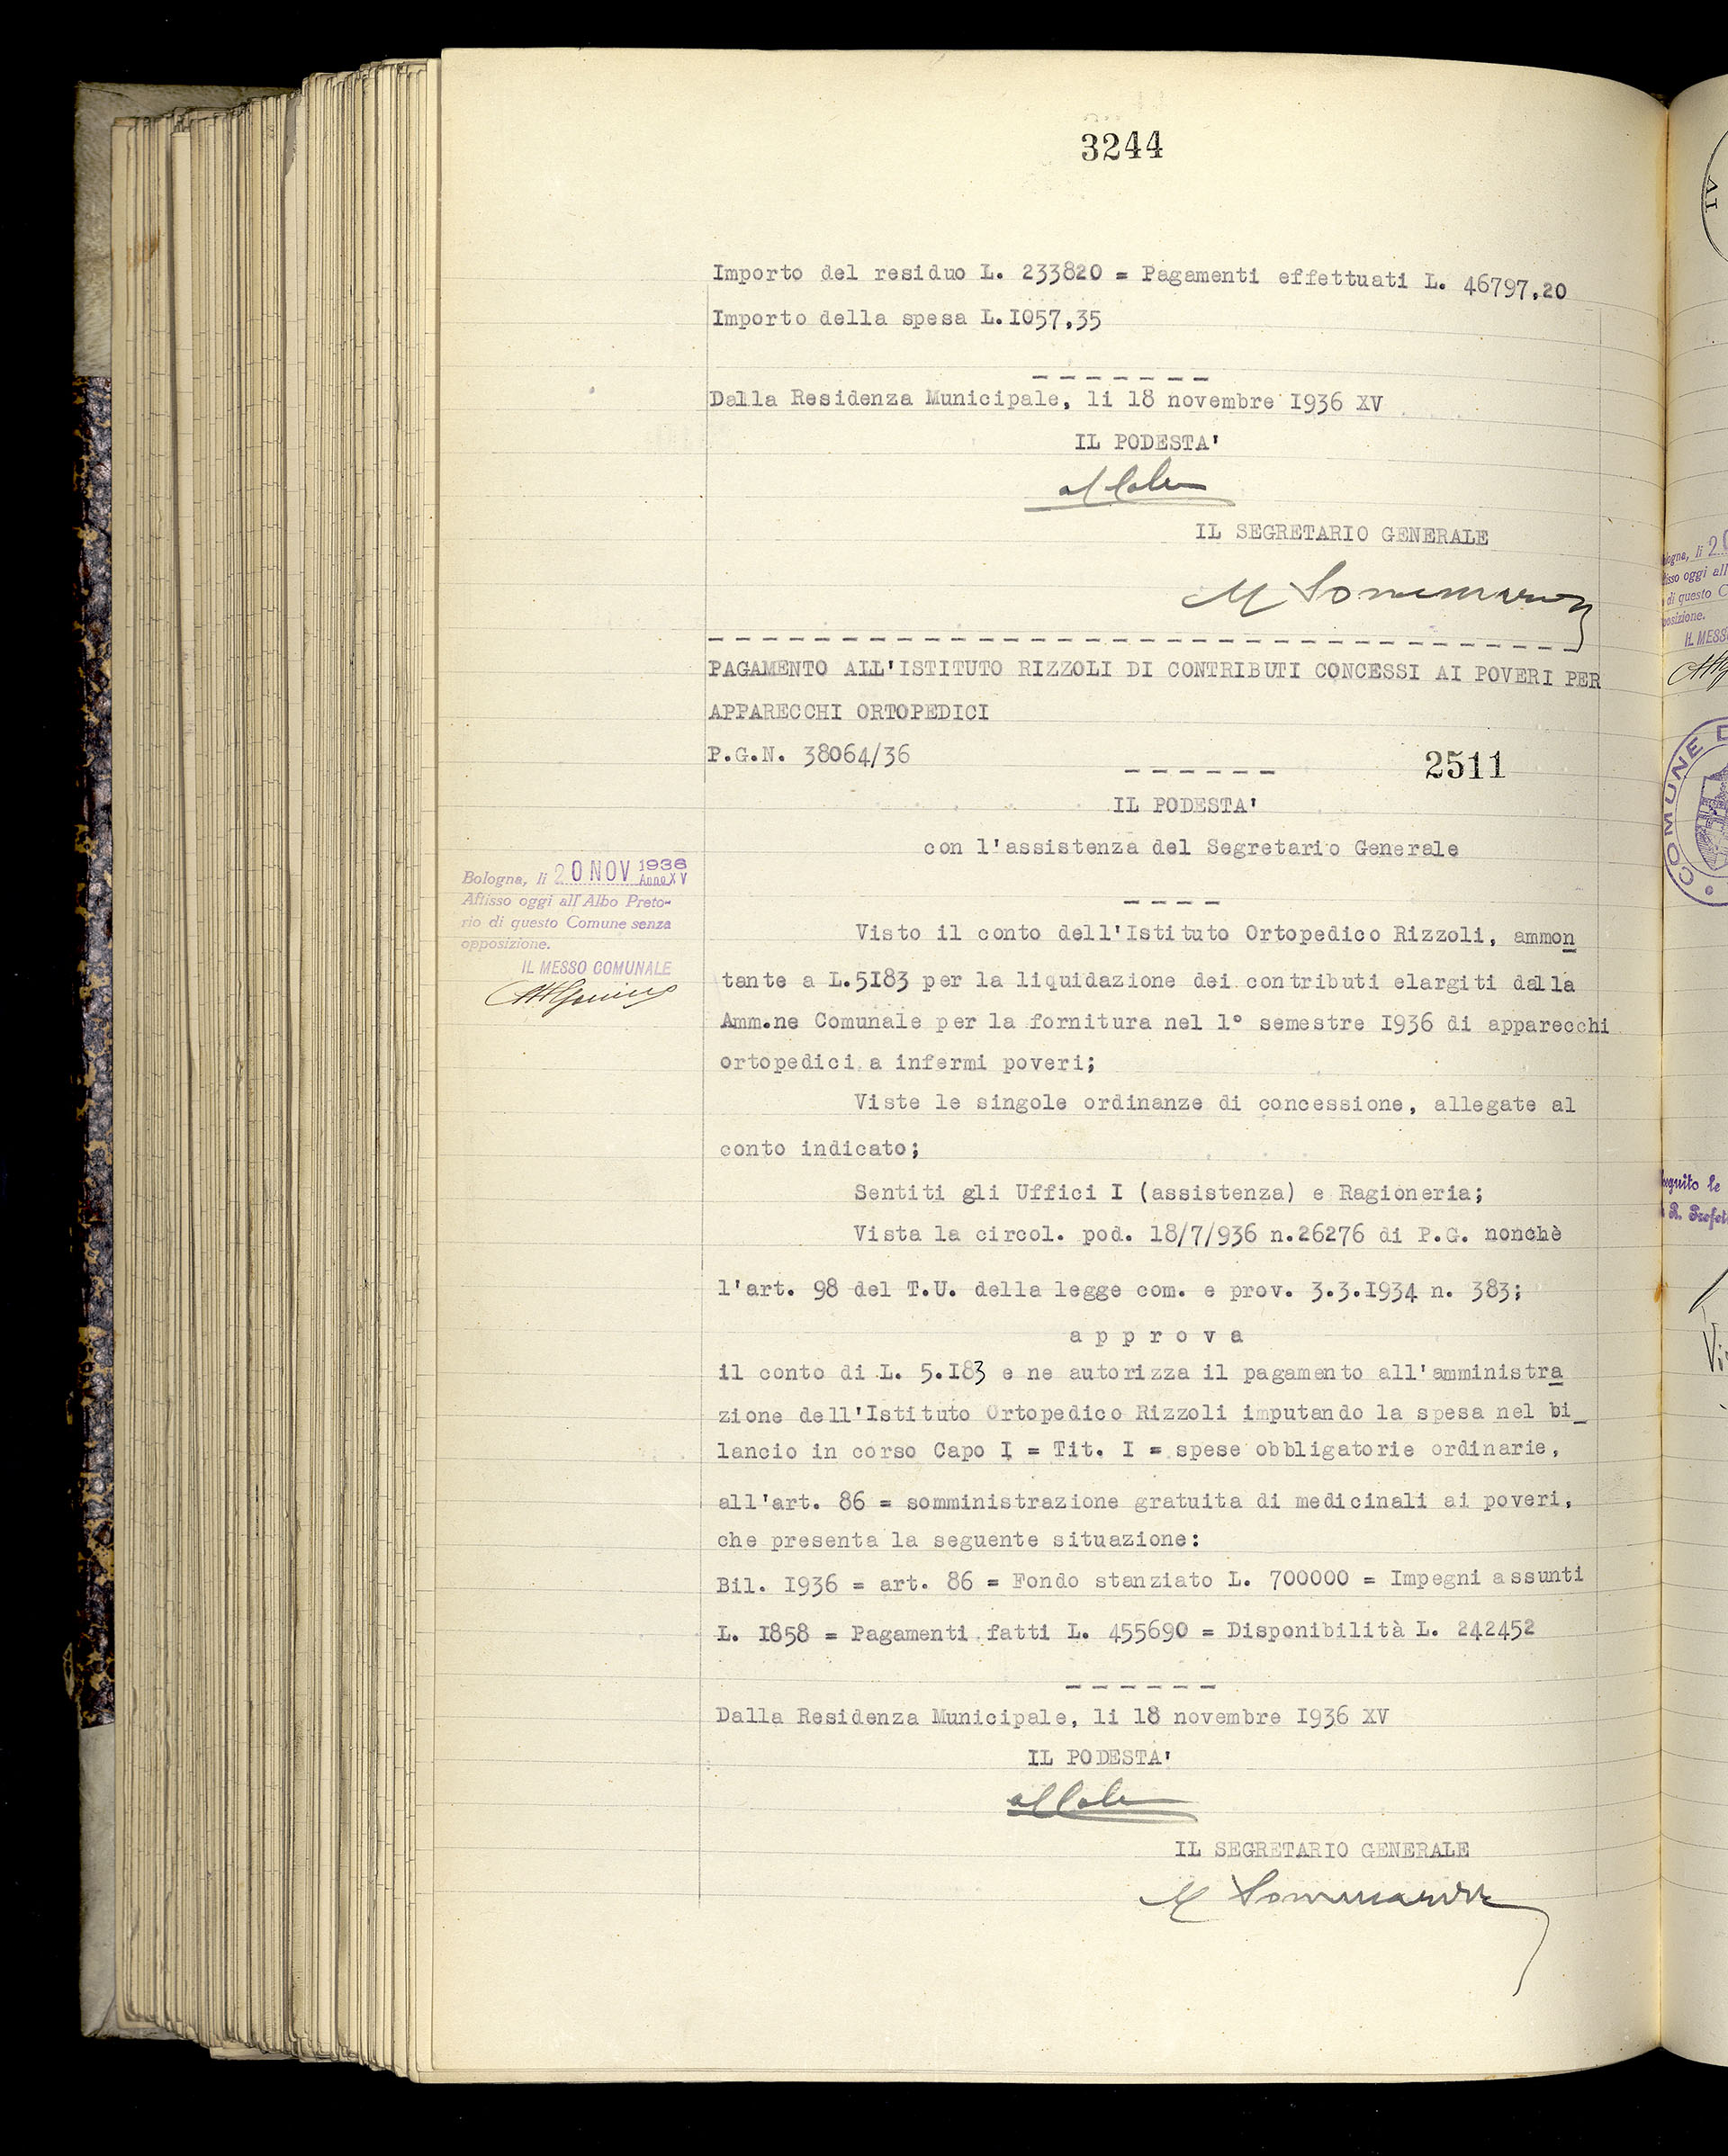 3244
Importo del residuo L. 233820 = Pagamenti effettuati L. 46797,20
Importo della spesa L.1057,35
-------
Dalla Residenza Municipale, li 18 novembre 1936 XV
IL PODESTA'
IL SEGRETARIO GENERALE
PAGAMENTO ALL'ISTITUTO RIZZOLI DI CONTRIBUTI CONCESSI AI POVERI PER
APPARECCHI ORTOPEDICI
P.G.N. 38064/36
------
2511
IL PODESTA'
con l'assistenza del Segretario Generale
----
Bologna, li 20 NOV 1936
Anno XV
Affisso oggi all'Albo Preto-
rio di questo Comune senza
opposizione.
IL MESSO COMUNALE
Visto il conto dell'Istituto Ortopedico Rizzoli, ammon
tante a L.5183 per la liquidazione dei contributi elargiti dalla
Amm.ne Comunale per la fornitura nel 1° semestre 1936 di apparecchi
ortopedici a infermi poveri;
Viste le singole ordinanze di concessione, allegate al
conto indicato;
Sentiti gli Uffici I (assistenza) e Ragioneria;
Vista la circol. pod. 18/7/936 n.26276 di P.G. nonchè
l'art. 98 del T.U. della legge com. e prov. 3.3.1934 n. 383;
a p p r o v a
il conto di L. 5.183 e ne autorizza il pagamento all'amministra
zione dell'Istituto Ortopedico Rizzoli imputando la spesa nel bi_
lancio in corso Capo I = Tit. I = spese obbligatorie ordinarie,
all'art. 86 = somministrazione gratuita di medicinali ai poveri,
che presenta la seguente situazione:
Bil. 1936 = art. 86 = Fondo stanziato L. 700000 = Impegni assunti
L. 1858 = Pagamenti fatti L. 455690 = Disponibilità L. 242452
------
Dalla Residenza Municipale, li 18 novembre 1936 XV
IL PODESTA'
IL SEGRETARIO GENERALE
COMUNE D